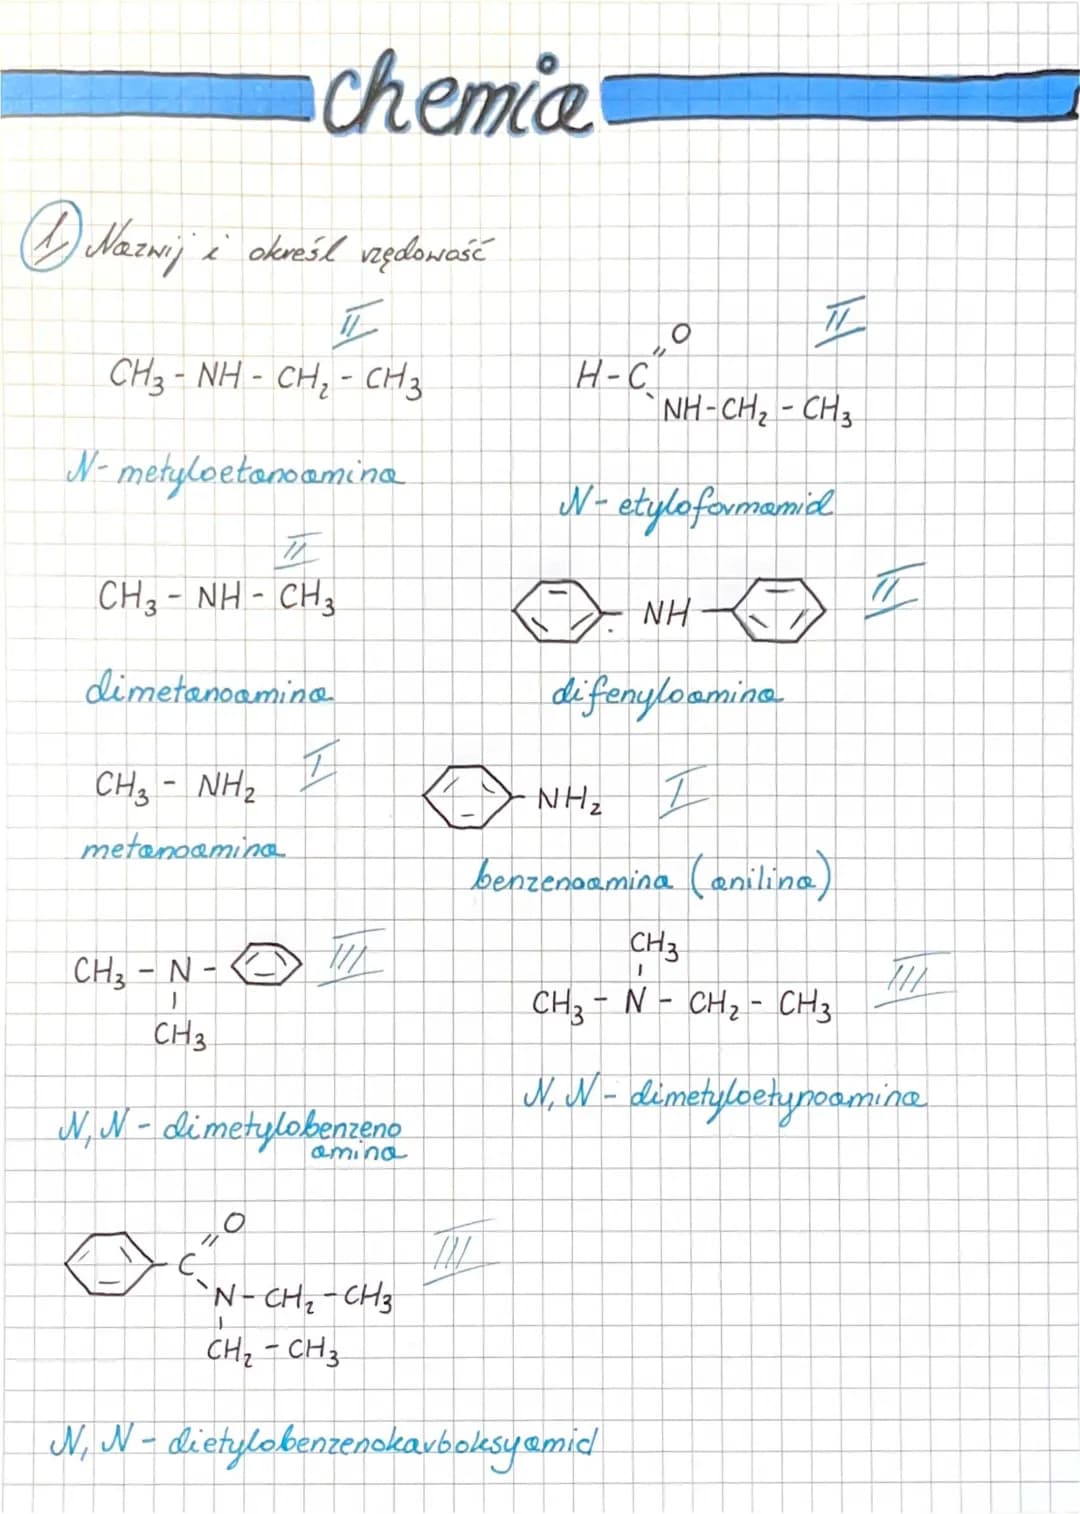 chemia
1) Nazwij i określ rzędowość
II
CH3 - NH - CH2 - CH3
N- metyloetanoamina
II
O
H-C
NH-CH2 - CH3
N- etyloformamid
II
CH3 - NH - CH3
dimetanoamina
NH
II
difenyloamina
CH3 - NH2 I
metanoamina
- NH2 I
benzenoamina (anilina)
CH3 - N - III
CH3
N, N - dimetylobenzeno
amina
CH3
CH3 - N - CH2 - CH3 III
N, N - dimetyloetynoamina
O
C
III
N - CH2 - CH3
CH2 - CH3
N, N - dietylobenzenokarboksyamid